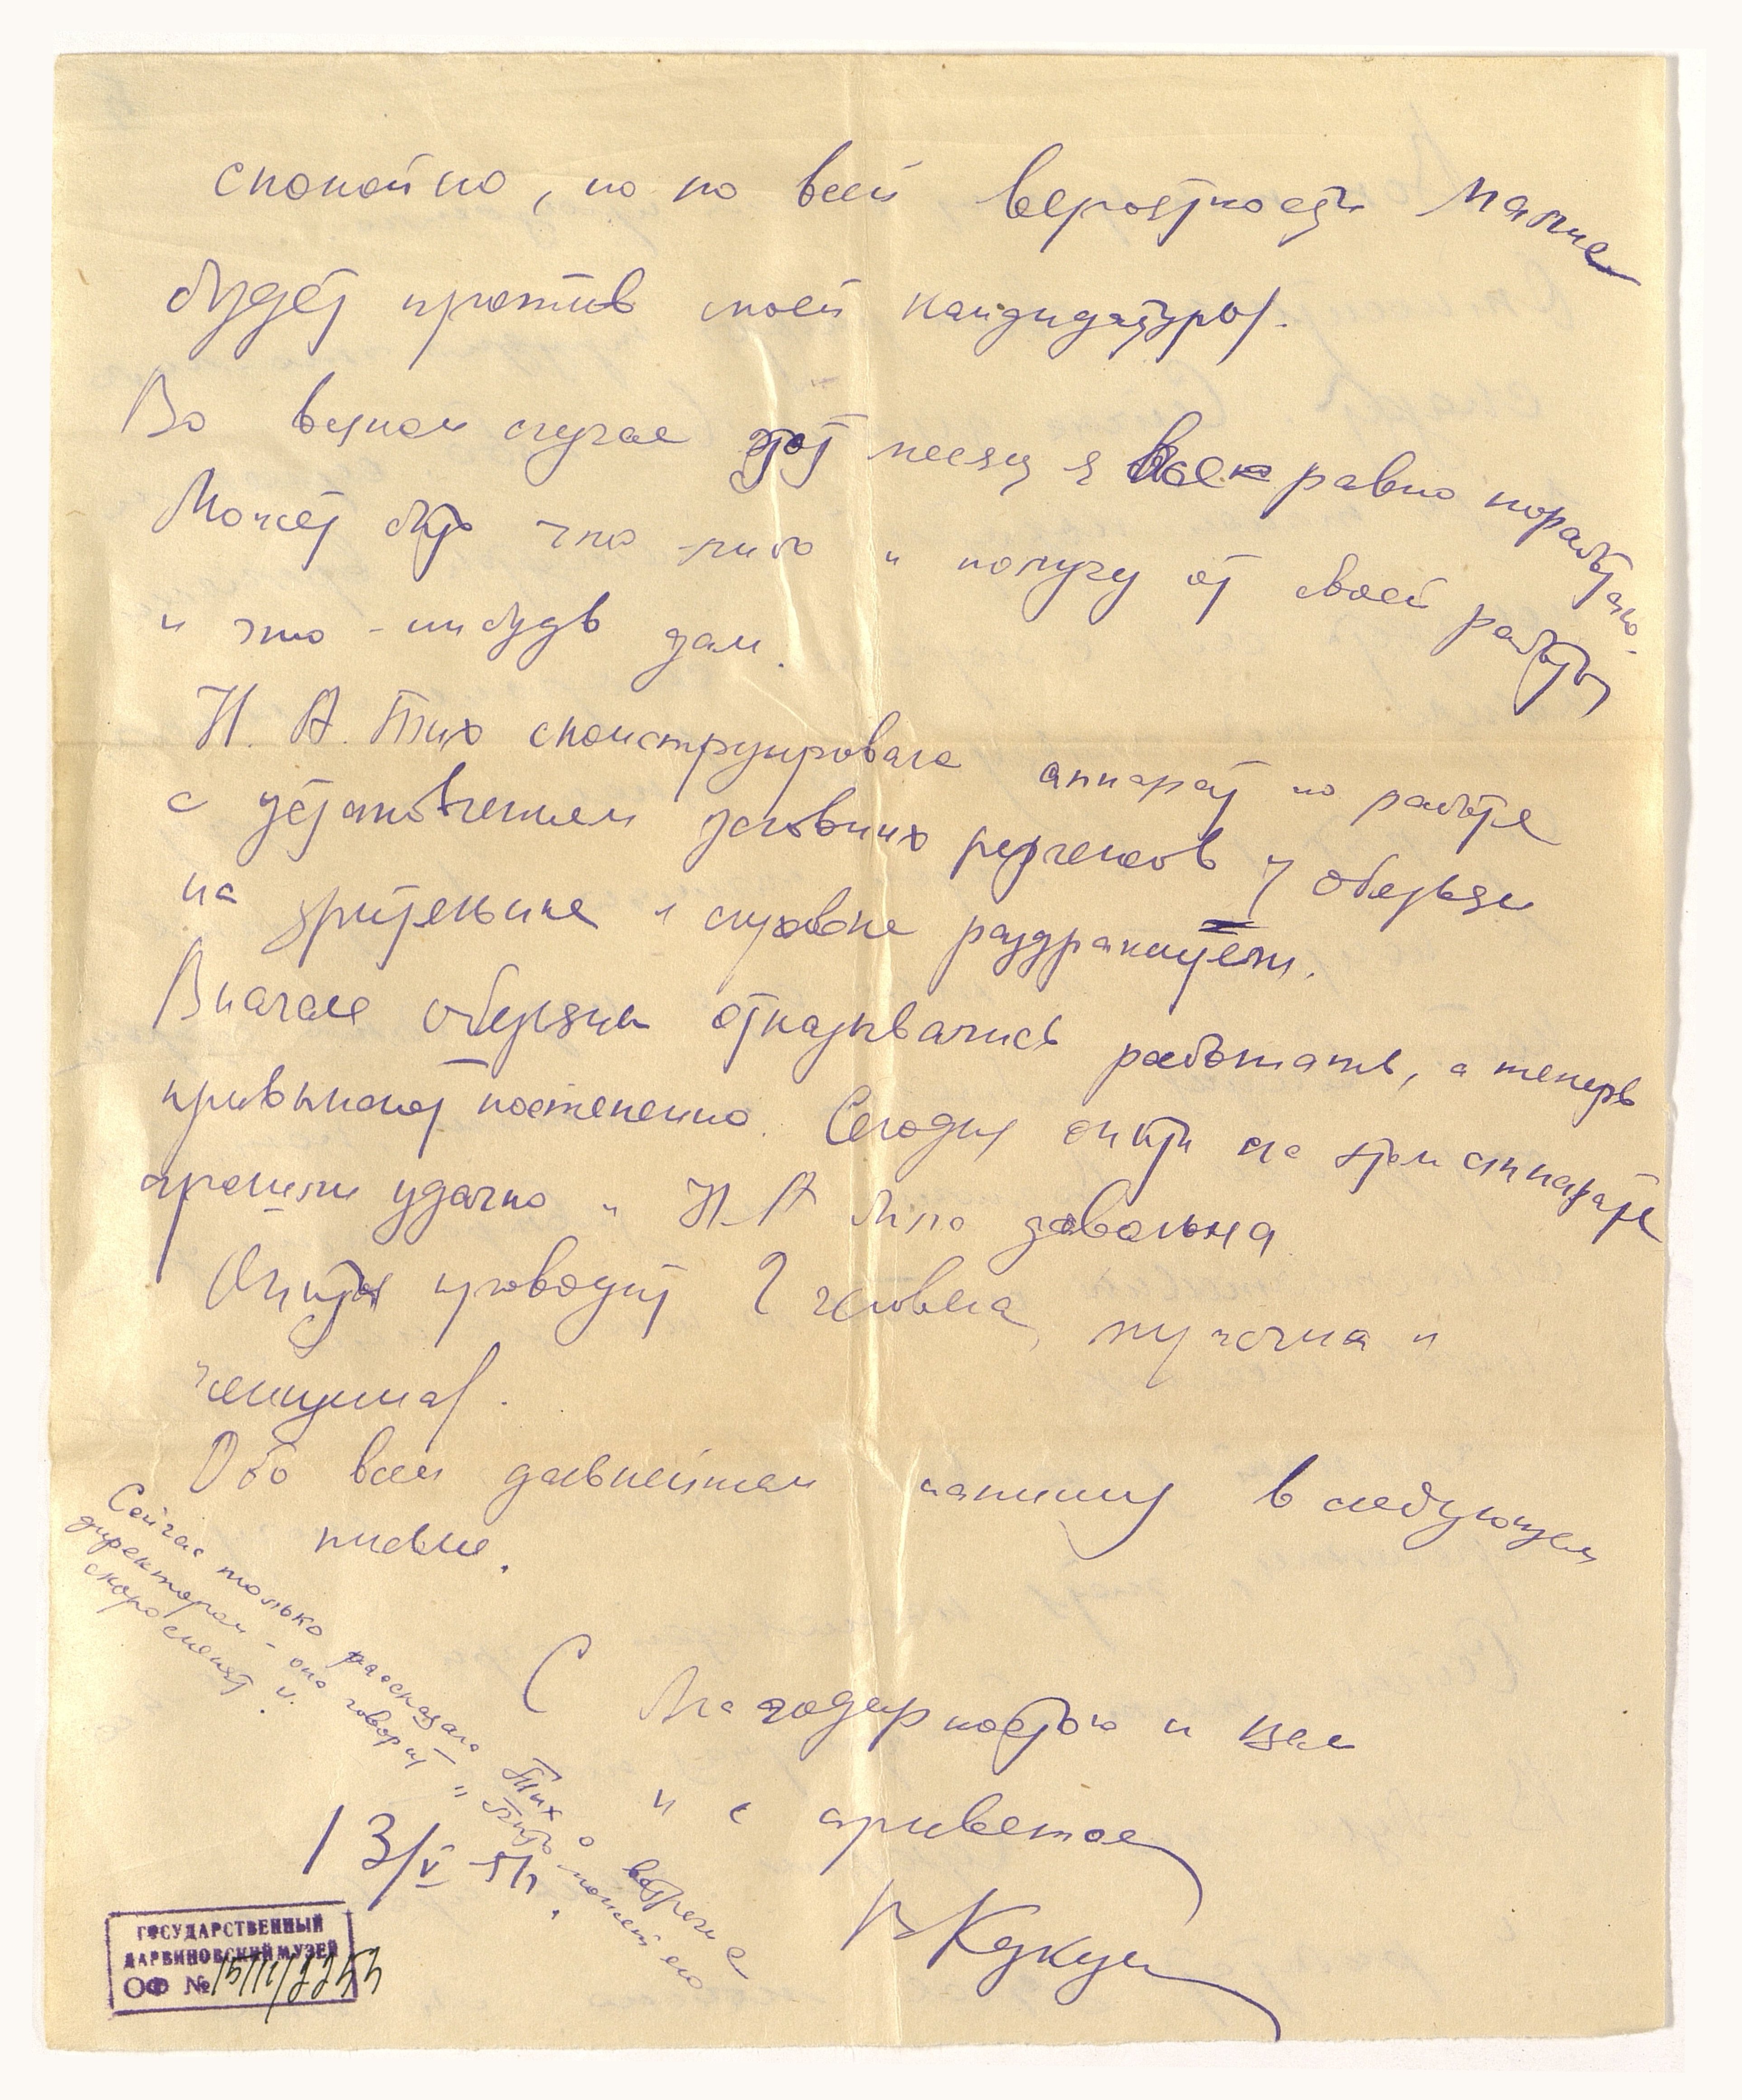 спокойно, но по всей вероятности
будет против моей кандидатуры.
Во всяком случае этот месяц я все равно поработаю.
Может быть что-либо и получу от своей работы
и что-нибудь дам.
Н. А. Тих сконструировала аппарат по работе
с установлением условных рефлексов у обезьян
на зрительные и слуховые раздражители.
Вначале обезьяны отказывались работать, а теперь
привыкают постепенно. Сегодня опыты на этом аппарате
прошли удачно и Н. А. была довольна
Опыты проводят 2 человека, мужчина и
женщина.
Обо всем дальнейшем напишу в следующем
письме.
С благодарностью
и с приветом
13/V 51 г.
Сейчас только рассказала Тих о встрече с
директором - она говорит может его
скоро снимут.
ГОСУДАРСТВЕННЫЙ
ДАРВИНОВСКИЙ МУЗЕЙ
ОФ №